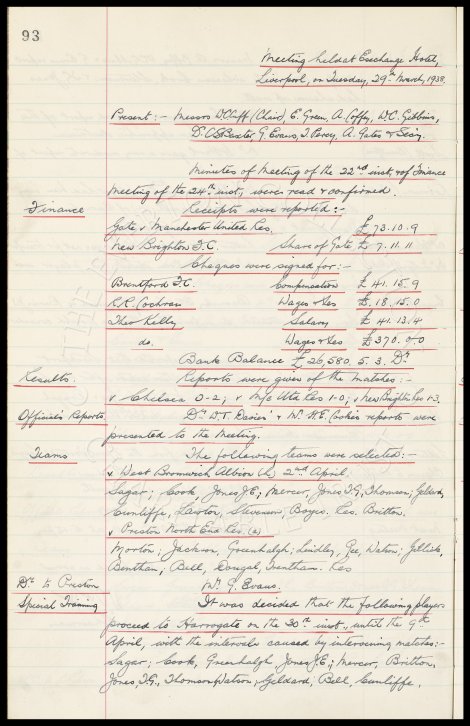 93
Meeting held at Exchange Hotel,
Liverpool, on Tuesday, 29th March, 1938.
Present:- Messrs W.C. Cuff (Chair), E. Green, A. Coffey, W.C. Gibbins,
Dr. C.S. Baxter, G. Evans, J. Percy, A. Gates & Secy.
Minutes of Meeting of the 22nd inst, & of Finance
Meeting of the 24th inst, were read & confirmed.
Finance Receipts were reported:-
Gate, v. Manchester United Res. £ 73.10.9
New Brighton F.C. Share of Gate £ 7.11.11
Cheques were signed for:-
Brentford F.C. Compensation £ 41.15.9
R.R. Cochran Wages & Les £ 18.15.0
Theo Kelly Salary £ 41.13.4
do. Wages & Les £370.0.0
Bank Balance £26,580.5.3. Dr.
Results Reports were given of the Matches:-
v. Chelsea 0-2; v M/c Utd Res 1-0; v New Brighton Res 1-3.
Official's Reports Dr. W.T. Davies' & Mr. H.E. Cooke's reports were
presented to the Meeting.
Teams The following teams were selected:-
v. West Bromwich Albion (h) 2nd April.
Sagar; Cook, Jones J.E; Mercer, Jones T.G, Thomson; Geldard,
Cunliffe, Lawton, Stevenson, Boyes. Res. Britton.
v. Preston North End Res. (a)
Morton; Jackson, Greenhalgh; Lindley, Gee, Watson; Gillick,
Bentham, Bell, Dougal, Trentham. Res
Dr. to Preston Mr. G. Evans.
Special Training It was decided that the following players
proceed to Harrogate on the 30th inst., until the 9th
April, with the intervals caused by intervening matches:-
Sagar; Cook, Greenhalgh, Jones J.E.; Mercer, Britton,
Jones, T.G., Thomson, Watson; Geldard, Bell, Cunliffe,